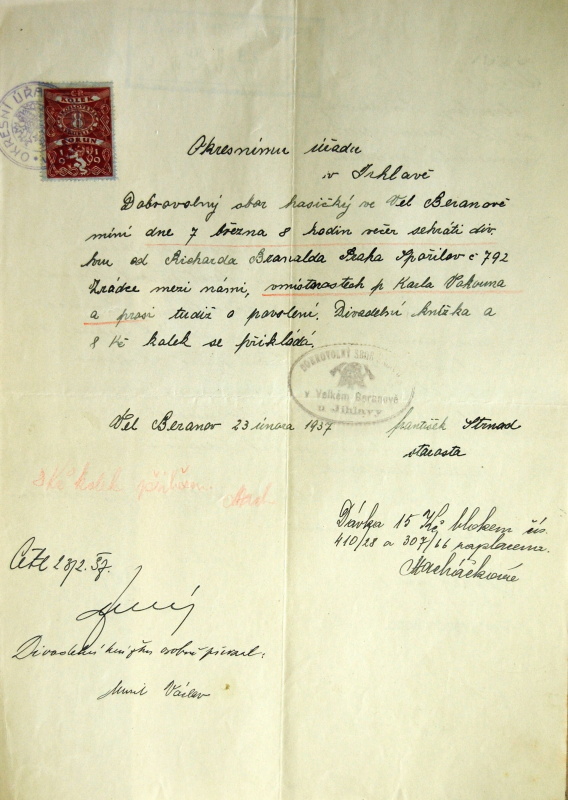 OKRESNÍ ÚŘA
KOLEK
8
KORUN
Okresnímu úřadu
v Jihlavě
Dobrovolný sbor hasičký ve Vel Beranově
míní dne 7 března 8 hodin večer sehráti div.
hru od Richarda Branalda Praha Spořilov č 792
Zrádce mezi námi, v místnostech p Karla Vakouna
a prosí tudíž o povolení. Divadelní knížka a
8 Kč kolek se přikládá.
DOBROVOLNÝ SBOR
v Velkém Beranově
u Jihlavy
Vel Beranov 23 února 1937
František Strnad
starosta
8 Kč kolek přiložen.
Dávka 15 Kč blokem čís.
410/28 a 307/66 zaplacena.
Macháčková
28/2. 37.
Divadelní knížku osobně převzal:
Václav